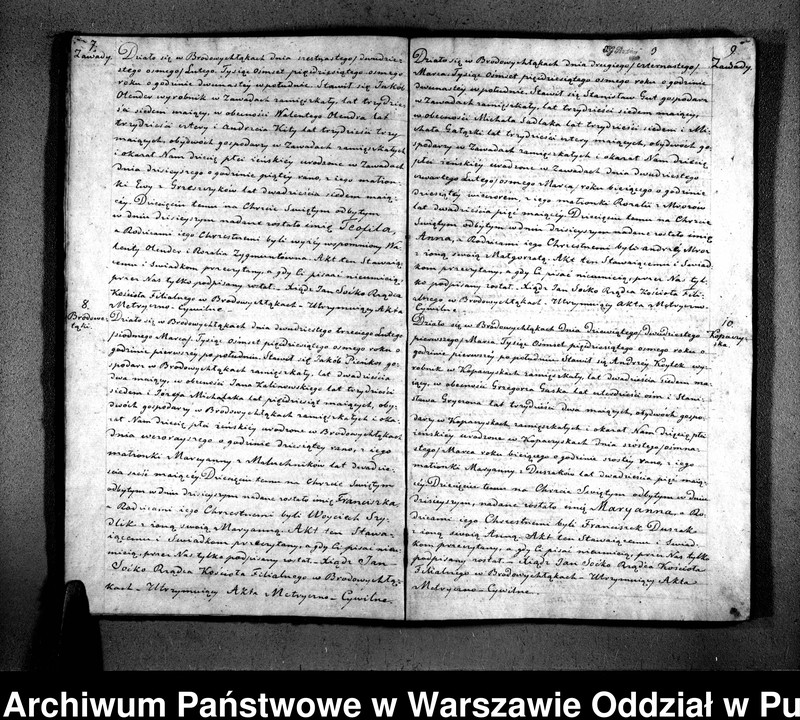 7.
Zawady.
Działo się w Brodowychłąkach dnia szesnastego/ dwudzie-
stego osmego/ Lutego, Tysiąc Ośmset pięćdziesiątego osmego
roku o godzinie dwunastey w południe. Stawił się Jakób
Olender wyrobnik w Zawadach zamięszkały, lat trzydzie-
ści siedem maiący, w obecności Walentego Olendra lat
trzydzieści cztery i Andrzeia Kity lat trzydzieści trzy
maiących, obydwóch gospodarzy w Zawadach zamięszkałych
i okazał Nam dziecię płci żeńskiey urodzone w Zawadach
dnia dzisieyszego o godzinie piątey rano, z iego małżon-
ki Ewy z Grzesczyków lat dwadzieścia siedem maią-
cey. Dziecięciu temu na Chrzcie Świętym odbytym
w dniu dzisieyszym nadane zostało imię Teofila,
a Rodzicami iego Chrzestnemi byli wyżey wspomniony Wa-
lenty Olender i Rozalia Zygmuntówna. Akt ten Stawaią-
cemu i Świadkom przeczytany, a gdy Ci pisać nieumieią,
przez Nas tylko podpisany został. Xiądz Jan Soćko Rządca
Kościoła Filialnego w Brodowychłąkach - Utrzymuiący Akta
Metryczno - Cywilne.
8.
Brodowe-
łąki.
Działo się w Brodowychłąkach dnia dwudziestego trzeciego Lutego/
siodmego Marca/ Tysiąc Ośmset pięćdziesiątego osmego roku o
godzinie pierwszey po południu. Stawił się Jakób Pieńkos go-
spodarz w Brodowychłąkach zamięszkały, lat dwadzieścia
dwa maiący, w obecności Jana Kalinowskiego lat trzydzieści
siedem i Józefa Michałaka lat pięćdziesiąt maiących, oby-
dwóch gospodarzy w Brodowychłąkach zamięszkałych i oka-
zał Nam dziecię płci żeńskiey urodzone w Brodowychłąkach
dnia wczorayszego o godzinie dziesiątey rano, z iego
małżonki Maryanny z Maluchników lat dwadzie-
ścia sześć maiącey. Dziecięciu temu na Chrzcie Świętym
odbytym w dniu dzisieyszym nadane zostało imię Franciszka
a Rodzicami iego Chrzestnemi byli Woyciech Szy-
dlik z żoną swoią Maryanną. Akt ten Stawa-
iącemu i Świadkom przeczytany, a gdy Ci pisać nieu-
mieią, przez Nas tylko podpisany został. Xiądz Jan
Soćko Rządca Kościoła Filialnego w Brodowychłą-
kach - Utrzymuiący Akta Metryczno - Cywilne.
9
9.
Zawady.
Działo się w Brodowychłąkach dnia drugiego/ czternastego/
Marca, Tysiąc Ośmset pięćdziesiątego osmego roku o godzinie
dwunastey w południe. Stawił się Stanisław Gut gospodarz
w Zawadach zamięszkały, lat trzydzieści siedem maiący,
w obecności Michała Sadlaka lat trzydzieści siedem i Mi-
chała Gałązki lat trzydzieści cztery maiących, obydwóch go-
spodarzy w Zawadach zamięszkałych i okazał Nam dziecię
płci żeńskiey urodzone w Zawadach dnia dwudziestego
czwartego Lutego/ osmego Marca/ roku bieżącego o godzinie
dziesiątey wieczorem, z iego małżonki Rozalii z Mrozów
lat dwadzieścia pięć maiącey. Dziecięciu temu na Chrzcie
Świętym odbytym w dniu dzisieyszym nadane zostało imię
Anna, a Rodzicami iego Chrzestnemi byli Andrzey Mroz
z żoną swoią Małgorzatą. Akt ten Stawaiącemu i Świad-
kom przeczytany, a gdy Ci pisać nieumieią, przez Nas tyl-
ko podpisany został. Xiądz Jan Soćko Rządca Kościoła Fili-
alnego w Brodowychłąkach - Utrzymuiący Akta Metryczno-
Cywilne.
10.
Kopaczy-
ska.
Działo się w Brodowychłąkach dnia dziewiątego/ dwudziestego
pierwszego/ Marca Tysiąc Ośmset pięćdziesiątego osmego roku o
godzinie pierwszey po południu. Stawił się Andrzey Kożek wy-
robnik w Kopaczyskach zamięszkały, lat dwadzieścia siedem ma-
iący, w obecności Grzegorza Gąska lat czterdzieści ośm i Stani-
sława lat trzydzieści dwa maiących, obydwóch gospo-
darzy w Kopaczyskach zamięszkałych i okazał Nam dziecię płci
żeńskiey urodzone w Kopaczyskach dnia szóstego/ ośmna-
stego/ Marca roku bieżącego o godzinie szóstey rano, z iego
małżonki Maryanny z Duszaków lat dwadzieścia pięć maią-
cey. Dziecięciu temu na Chrzcie Świętym odbytym w dniu
dzisieyszym, nadane zostało imię Maryanna, a Ro-
dzicami iego Chrzestnemi byli Franciszek Duszak
z żoną swoią Anną. Akt ten Stawaiącemu i Świad-
kom przeczytany, a gdy Ci pisać nieumieią, przez Nas tylko
podpisany został. Xiądz Jan Soćko Rządca Kościoła
Filialnego w Brodowychłąkach - Utrzymuiący Akta
Metryczno - Cywilne.
Archiwum Państwowe w Warszawie Oddział w Pu